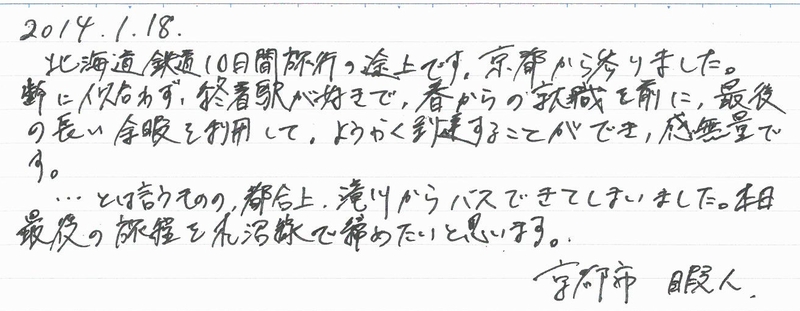 2014.1.18.
北海道鉄道10日間旅行の途上です。京都から参りました。
齢に似合わず、終着駅が好きで、春からの就職を前に、最後
の長い余暇を利用して、ようやく到達することができ、感無量で
す。
…とは言うものの、都合上、滝川からバスできてしまいました。本日
最後の旅程を札沼線で締めたいと思います。
京都市 暇人.